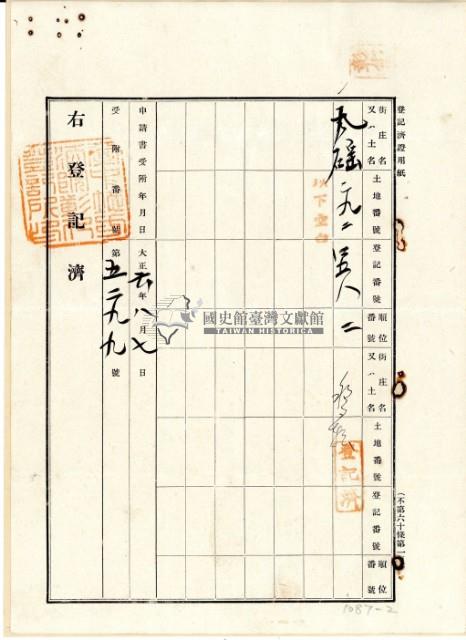 登記済證用紙
街庄名又ハ土名
土地番號
登記番號
順位番號
街庄名又ハ土名
土地番號
登記番號
順位番號
(不第六十條第一
以下空白
登記済
申請書受附年月日
大正六年八月七日
受附番號
第五二九九號
右登記済
國史館臺灣文獻館
TAIWAN HISTORICA
1087-2